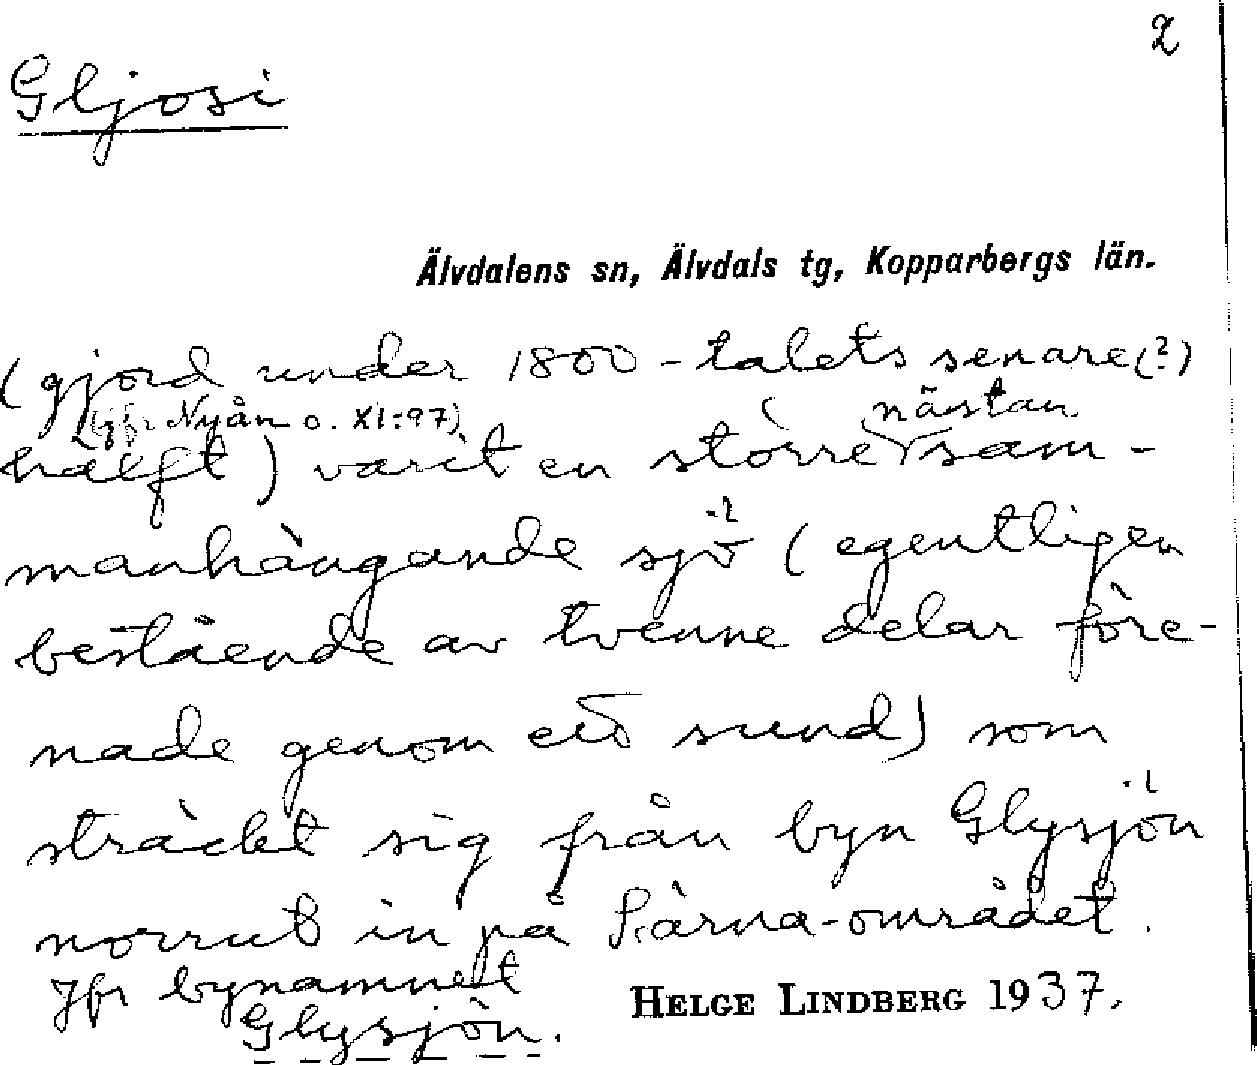 2
Gljosi
Älvdalens sn, Älvdals tg, Kopparbergs län.
(gjord under 1800-talets senare(?)
(jfr Nyån o. XI:97) nästan
hälft) varit en större sam-
manhängande sjö (egentligen
bestående av tvenne delar före-
nade genom ett sund) som
sträckt sig från byn Glysjön
norrut in på Särna-området.
Jfr bynamnet
Glysjön.
HELGE LINDBERG 1937.